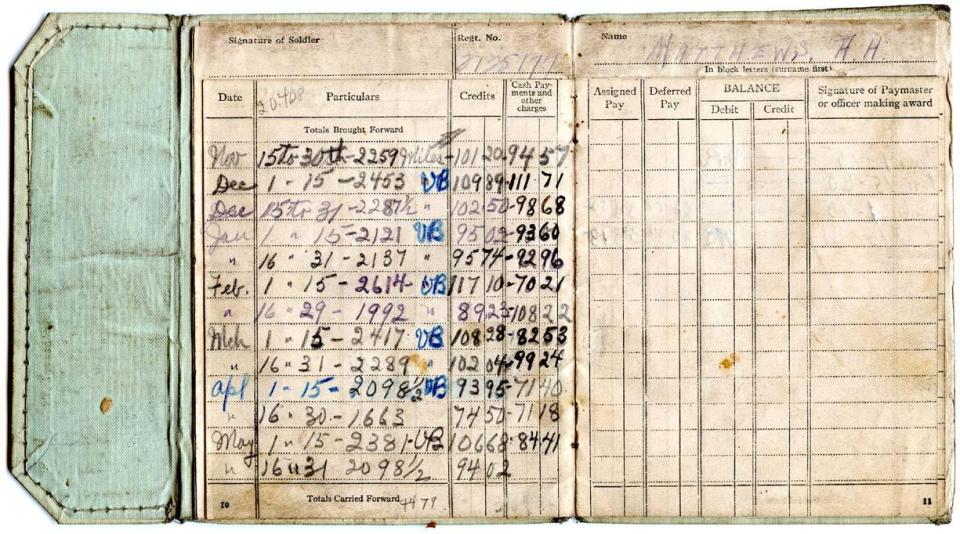 Signature of Soldier
Regt. No.
2125177
Date Particulars Credits Cash Pay-ments and other charges
Totals Brought Forward
Nov 15 to 30th - 2259 Miles - 101 20 - 94 57
Dec 1 - 15 - 2453 VB 109 89 - 111 71
Dec 15 to 31 - 2287½ " 102 50 - 98 68
Jan 1 " 15 - 2121 VB 95 02 - 93 60
" 16 " 31 - 2137 " 95 74 - 92 96
Feb. 1 " 15 - 2614 - VB 117 10 - 70 21
" 16 - 29 - 1992 " 89 23 - 108 22
Mch 1 - 15 - 2417 VB 108 28 - 82 53
" 16 " 31 - 2289 " 102 04 - 99 24
Apl 1 - 15 - 2098½ VB 93 95 - 71 40
" 16 " 30 - 1663 74 50 - 71 18
May 1 " 15 - 2381 - VB 106 68 - 84 41
" 16 " 31 2098½ 94 02
Totals Carried Forward
10
Name MATTHEWS, H H.
In block letters (surname first)
Assigned Pay Deferred Pay BALANCE Signature of Paymaster or officer making award
Debit Credit
11